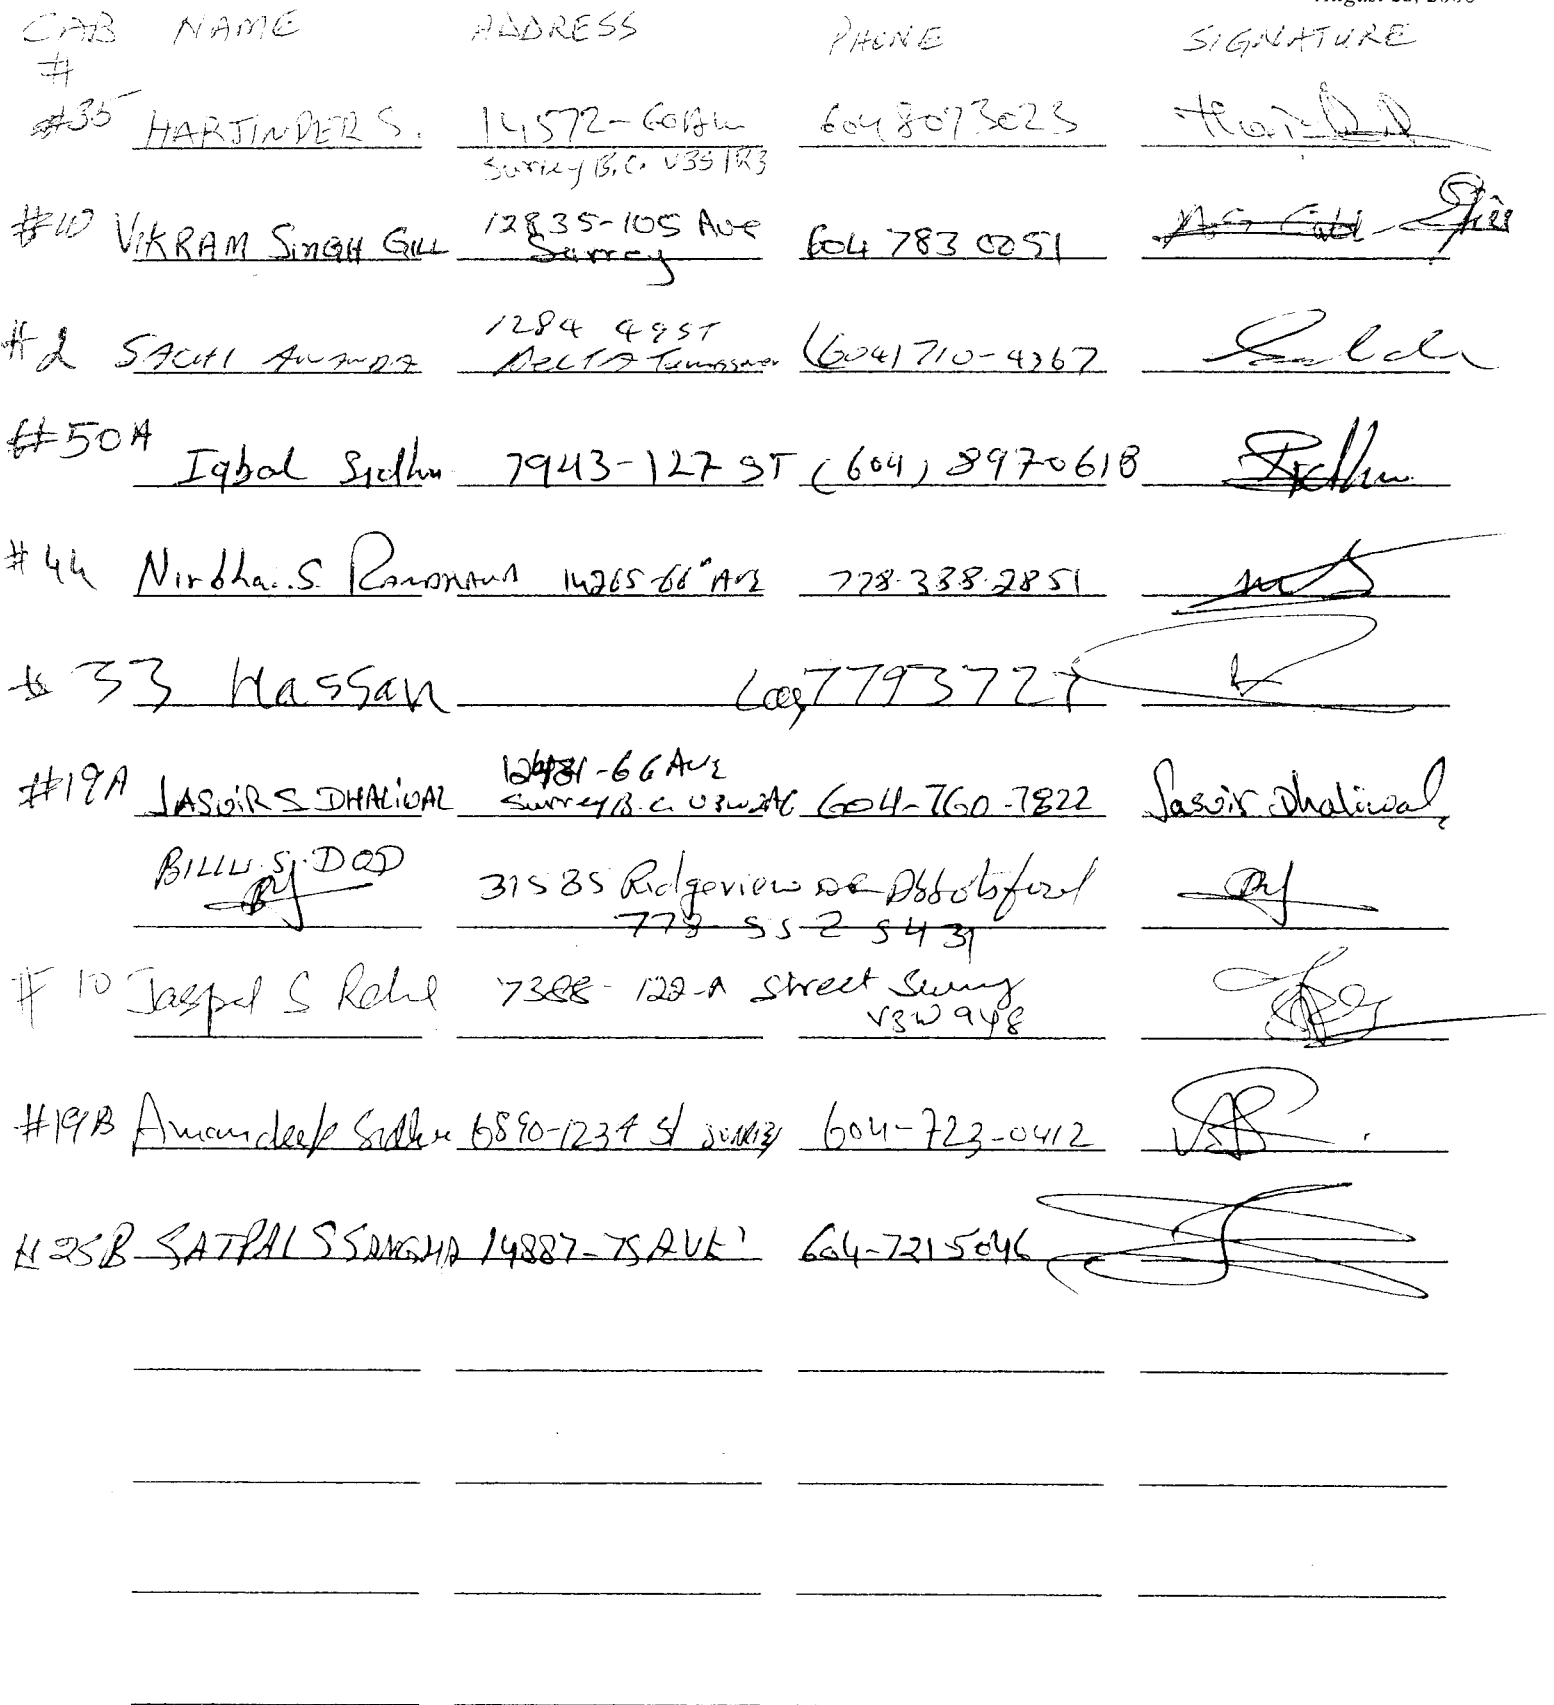 CAB NAME ADDRESS PHONE SIGNATURE
#
#35 HARJINDER S. 14572-60 6048073023
Surrey B.C. V3S 1R3
12835-105 Ave
#10 VIKRAM SINGH GILL Surrey 604 783 0051
1284 49 ST
#2 SACHI ANANDA DELTA (604) 710-4367
#50A
Iqbal Sidhu 7943-127 ST (604) 8970618
#44 Nirbhai.S. RANDHAWA 14265-66 AVE 778-338-2851
33 Hassan 7793727
-66 AVE
#19A JASVIR S DHALIWAL Surrey B.C. V3W 604-760-7822 Jasvir Dhaliwal
BILLU.S. DOD 31585 Ridgeview DR Abbotsford
778 552 5431
#10 Jaspal S 7388-122-A Street Surrey
V3W 9Y8
#19B Amandeep Sidhu 6890-123A St SURREY 604-723-0412
#25B SATPAL S SANGHA 14887-75 AVE 604-721-5046